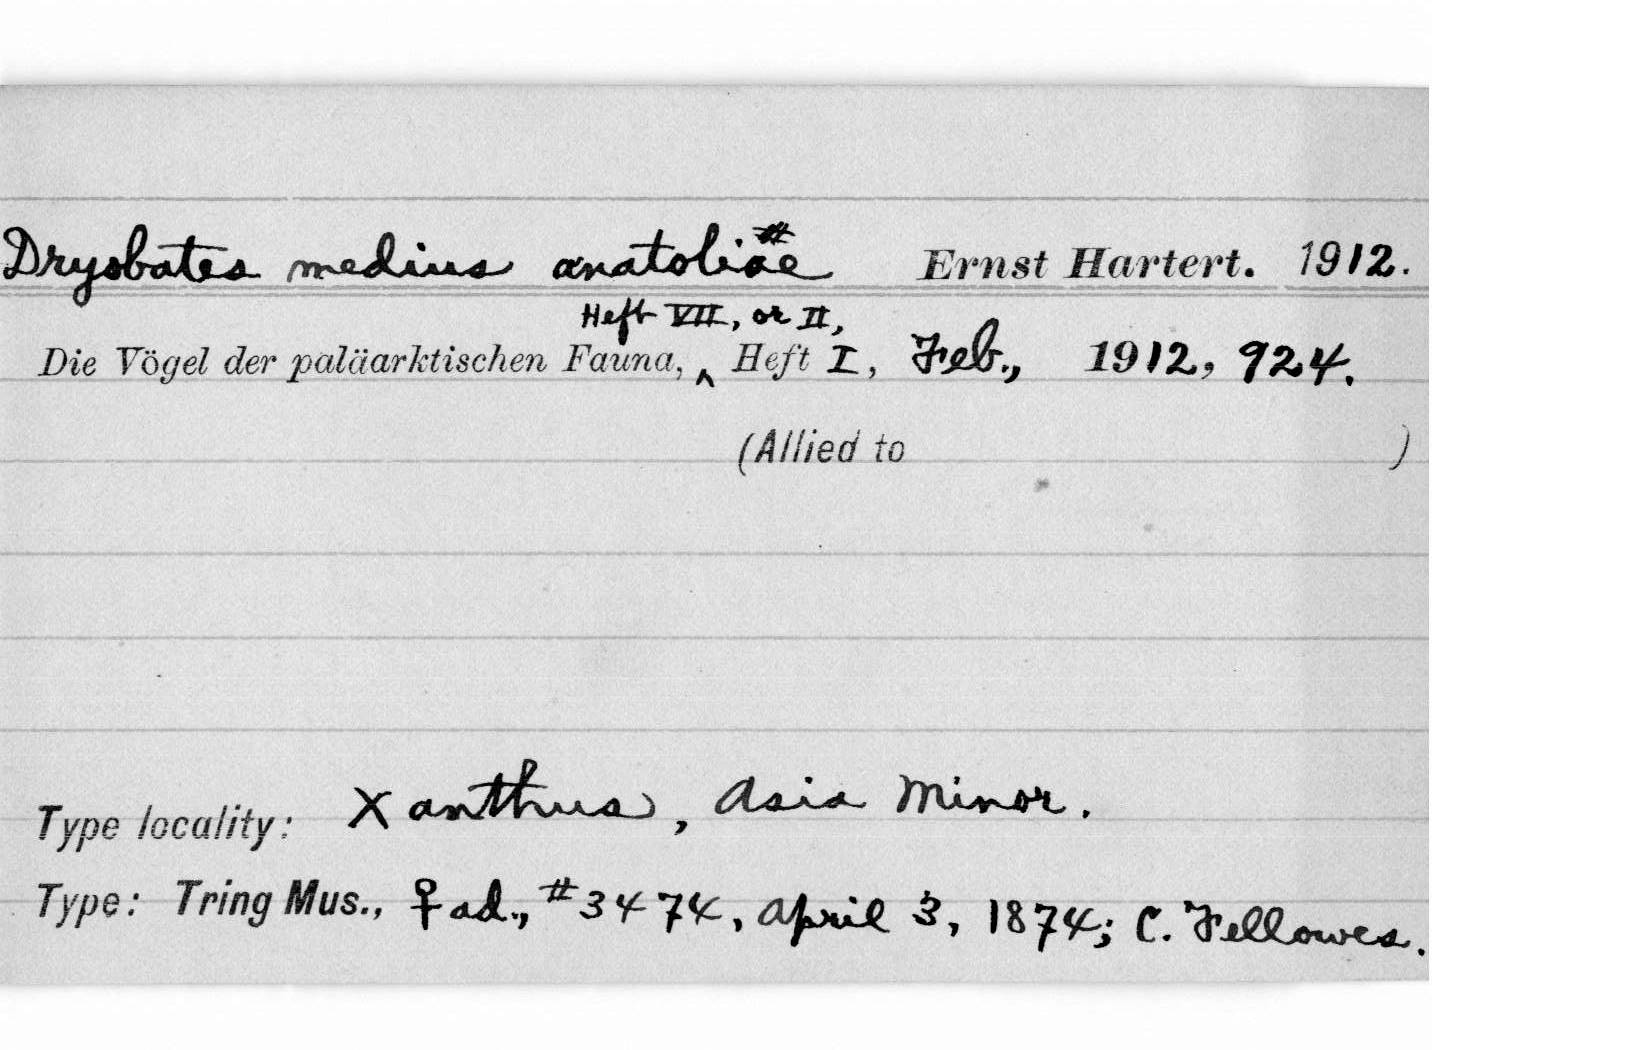 Dryobates medius anatoliae Ernst Hartert. 1912.
Heft VII, or II,
Die Vögel der paläarktischen Fauna, ^ Heft I, Feb., 1912, 924.
(Allied to )
Type locality: Xanthus, Asia Minor.
Type: Tring Mus., ♀ ad., #3474, April 3, 1874; C. Fellowes.